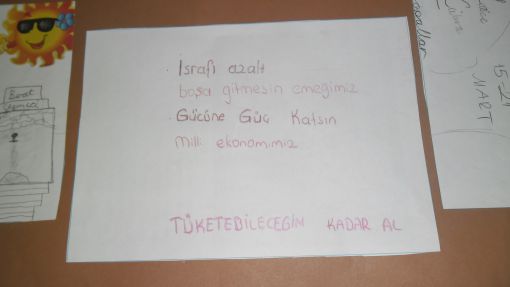 · İsrafı azalt
boşa gitmesin emeğimiz
· Gücüne Güç Katsın
milli ekonomimiz
TÜKETEBİLECEĞİN KADAR AL
15-21
MART